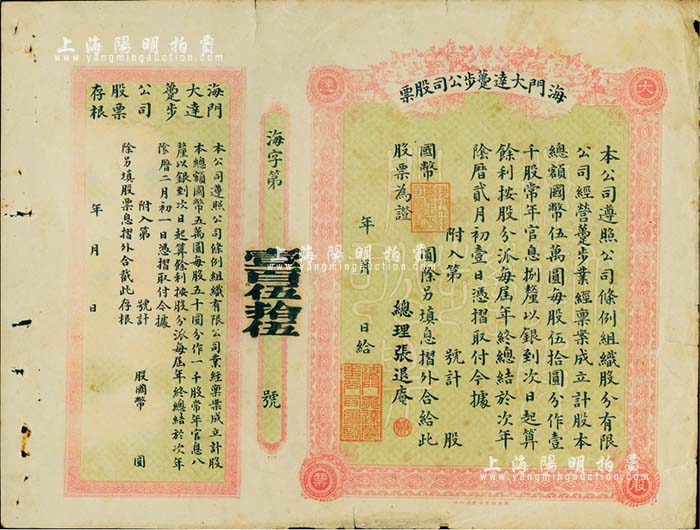 上海陽明拍賣
www.yangmingauction.com
上海陽明拍賣
www.yangmingauction.com
大
達
股
票
海門大達躉步公司股票
本公司遵照公司條例組織股分有限
公司經營躉步業經稟案成立計股本
總額國幣伍萬圓每股伍拾圓分作壹
千股常年官息捌釐以銀到次日起算
餘利按股分派每屆年終總結於次年
陰曆貳月初壹日憑摺取付今據
附入第 號計 股
國幣 圓除另填息摺外合給此
股票為證
年 月 日給
總理張退庵
海字第
壹百伍拾伍
號
海門大達
躉步公司
股票存根
本公司遵照公司條例組織有限公司業經稟案成立計股
本總額國幣五萬圓每股五十圓分作一千股常年官息八
釐以銀到次日起算餘利按股分派每屆年終總結於次年
陰曆二月初一日憑摺取付今據
附入第 號計 股國幣 圓
除另填股票息摺外合截此存根
年 月 日
上海陽明拍賣
www.yangmingauction.com
上海陽明拍賣
www.yangmingauction.com